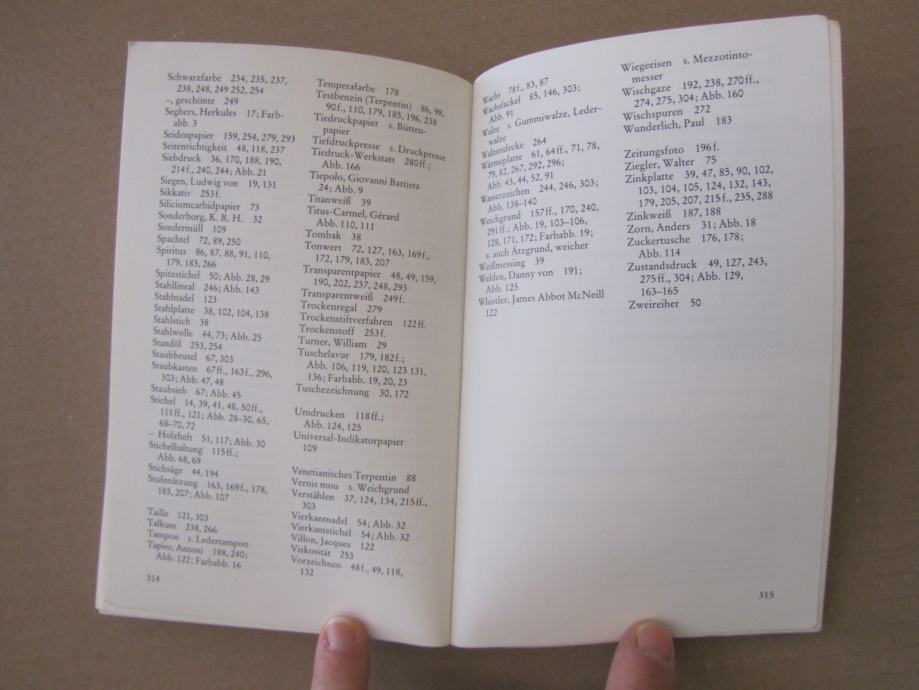 Schwarzfarbe 234, 235, 237,
238, 248, 249 252, 254
–, geschönte 249
Seghers, Herkules 17; Farb-
abb. 3
Seidenpapier 159, 254, 279, 293
Seitenrichtigkeit 48, 118, 237
Siebdruck 36, 170, 188, 190,
214 f., 240, 244; Abb. 21
Siegen, Ludwig von 19, 131
Sikkativ 253 f.
Siliciumcarbidpapier 73
Sonderborg, K. R. H. 32
Sondermüll 109
Spachtel 72, 89, 250
Spiritus 86, 87, 88, 91, 110,
179, 183, 266
Spitzstichel 50; Abb. 28, 29
Stahllineal 246; Abb. 143
Stahlnadel 123
Stahlplatte 38, 102, 104, 138
Stahlstich 38
Stahlwolle 44, 73; Abb. 25
Standöl 253, 254
Staubbeutel 67, 303
Staubkasten 67 ff., 163 f., 296,
303; Abb. 47, 48
Staubsieb 67; Abb. 45
Stichel 14, 39, 41, 48, 50 ff.,
111 ff., 121; Abb. 28–30, 65,
68–70, 72
– Holzheft 51, 117; Abb. 30
Stichelhaltung 115 ff.;
Abb. 68, 69
Stichsäge 44, 194
Stufenätzung 163, 169 f., 178,
183, 207; Abb. 107
Taille 121, 303
Talkum 238, 266
Tampon s. Ledertampon
Tàpies, Antoni 188, 240;
Abb. 122; Farbabb. 16
314
Temperafarbe 178
Testbenzin (Terpentin) 86, 98,
90 f., 110, 179, 185, 196, 238
Tiedruckpapier s. Bütten-
papier
Tiefdruckpresse s. Druckpresse
Tiedruck-Werkstatt 280 ff.;
Abb. 166
Tiepolo, Giovanni Battista
24; Abb. 9
Titanweiß 39
Titus-Carmel, Gérard
Abb. 110, 111
Tombak 38
Tonwert 72, 127, 163, 169 f.,
172, 179, 183, 207
Transparentpapier 48, 49, 159,
190, 202, 237, 248, 293
Transparentweiß 249 f.
Trockenregal 279
Trockenstiftverfahren 122 ff.
Trockenstoff 253 f.
Turner, William 29
Tuschelavur 179, 182 f.;
Abb. 106, 119, 120, 123 131,
136; Farbabb. 19, 20, 23
Tuschezeichnung 30, 172
Umdrucken 118 ff.;
Abb. 124, 125
Universal-Indikatorpapier
109
Venetianisches Terpentin 88
Vernis mou s. Weichgrund
Verstählen 37, 124, 134, 215 ff.,
303
Vierkantnadel 54; Abb. 32
Vierkantstichel 54; Abb. 32
Villon, Jacques 122
Viskosität 253
Vorzeichnen 48 f., 49, 118,
132
Wachs 78 f., 83, 87
Wachsfackel 85, 146, 303;
Abb. 91
Walze s. Gummiwalze, Leder-
walze
Walzendecke 264
Wärmeplatte 61, 64 ff., 71, 78,
79, 82, 267, 292, 296;
Abb. 43, 44, 52, 91
Wasserzeichen 244, 246, 303;
Abb. 138–140
Weichgrund 157 ff., 170, 240,
291 ff.; Abb. 19, 103–106,
128, 171, 172; Farbabb. 19;
s. auch Ätzgrund, weicher
Weißmessing 39
Welden, Danny von 191;
Abb. 125
Whistler, James Abbot McNeill
122
Wiegeeisen s. Mezzotinto-
messer
Wischgaze 192, 238, 270 ff.,
274, 275, 304; Abb. 160
Wischspuren 272
Wunderlich, Paul 183
Zeitungsfoto 196 f.
Ziegler, Walter 75
Zinkplatte 39, 47, 85, 90, 102,
103, 104, 105, 124, 132, 143,
179, 205, 207, 215 f., 235, 288
Zinkweiß 187, 188
Zorn, Anders 31; Abb. 18
Zuckertusche 176, 178;
Abb. 114
Zustandsdruck 49, 127, 243,
275 ff., 304; Abb. 129,
163–165
Zweireiher 50
315